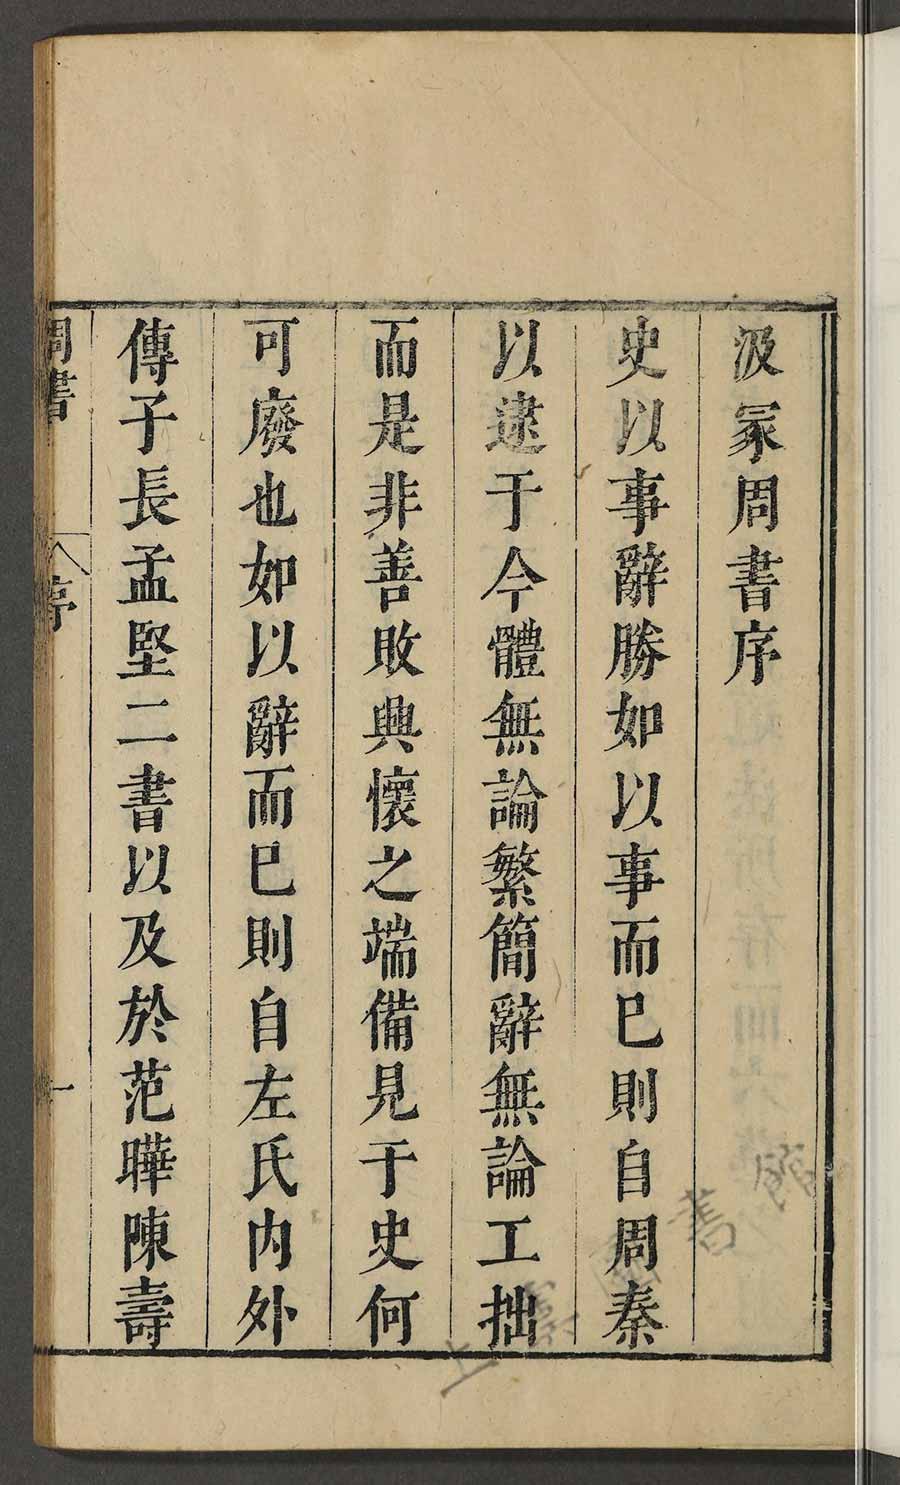 汲冢周書序
史以事辭勝如以事而巳則自周秦
以逮于今體無論繁簡辭無論工拙
而是非善敗興懷之端備見于史何
可廢也如以辭而巳則自左氏內外
傳子長孟堅二書以及於范曄陳壽
周書 序 一